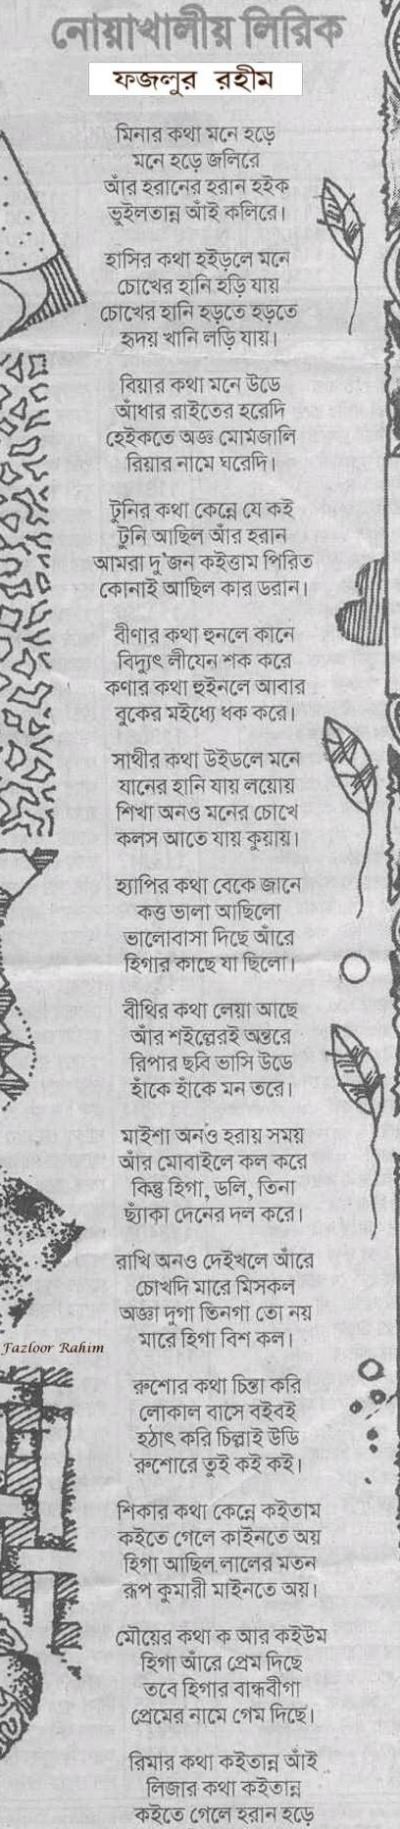 নোয়াখালীয় লিরিক
ফজলুর রহীম
মিনার কথা মনে হড়ে
মনে হড়ে জলিরে
আঁর হরানের হরান হইক
ভুইলতান্ন আঁই কলিরে।
হাসির কথা হইড়লে মনে
চোখের হানি হড়ি যায়
চোখের হানি হড়তে হড়তে
হৃদয় খানি লড়ি যায়।
বিয়ার কথা মনে উডে
আঁধার রাইতের হরেদি
হেইকতে অজ্ঞ মোমজালি
রিয়ার নামে ঘরেদি।
টুনির কথা কেন্নে যে কই
টুনি আছিল আঁর হরান
আমরা দু'জন কইত্তাম পিরিত
কোনাই আছিল কার ডরান।
বীণার কথা হুনলে কানে
বিদ্যুৎ লীযেন শক করে
কণার কথা হুইনলে আবার
বুকের মইধ্যে ধক করে।
সাথীর কথা উইডলে মনে
যানের হানি যায় লয়োয়
শিখা অনও মনের চোখে
কলস আতে যায় কুয়ায়।
হ্যাপির কথা বেকে জানে
কত্ত ভালা আছিলো
ভালোবাসা দিছে আঁরে
হিগার কাছে যা ছিলো।
বীথির কথা লেয়া আছে
আঁর শইল্লেরই অন্তরে
রিপার ছবি ভাসি উডে
হাঁকে হাঁকে মন তরে।
মাইশা অনও হরায় সময়
আঁর মোবাইলে কল করে
কিন্তু হিগা, ডলি, তিনা
ছ্যাঁকা দেনের দল করে।
রাখি অনও দেইখলে আঁরে
চোখদি মারে মিসকল
অজ্ঞা দুগা তিনগা তো নয়
মারে হিগা বিশ কল।
Fazloor Rahim
রুশোর কথা চিন্তা করি
লোকাল বাসে বইবই
হঠাৎ করি চিল্লাই উডি
রুশোরে তুই কই কই।
শিকার কথা কেন্নে কইতাম
কইতে গেলে কাইনতে অয়
হিগা আছিল লালের মতন
রূপ কুমারী মাইনতে অয়।
মৌয়ের কথা ক আর কইউম
হিগা আঁরে প্রেম দিছে
তবে হিগার বান্ধবীগা
প্রেমের নামে গেম দিছে।
রিমার কথা কইতান্ন আঁই
লিজার কথা কইতান্ন
কইতে গেলে হরান হড়ে